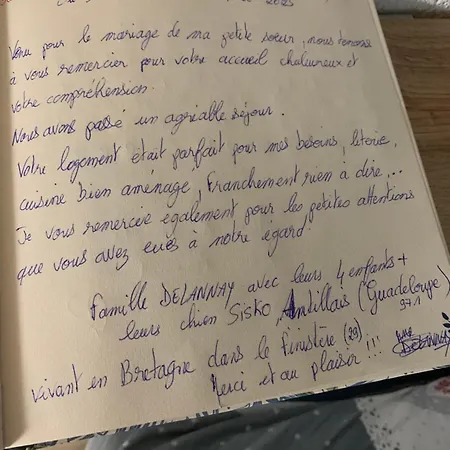 2023
Venu pour le mariage de ma petite soeur, nous tenons
à vous remercier pour votre accueil chaleureux et
votre compréhension.
Nous avons passé un agréable séjour.
Votre logement était parfait pour mes besoins, literie,
cuisine bien aménagé, franchement rien à dire...
Je vous remercie également pour les petites attentions
que vous avez eues à notre égard!
famille DELANNAY avec leurs 4 enfants +
leurs chien Sisko, Antillais (Guadeloupe)
971
vivant en Bretagne dans le finistère (29)
Merci et au plaisir!!!
DELANNAY